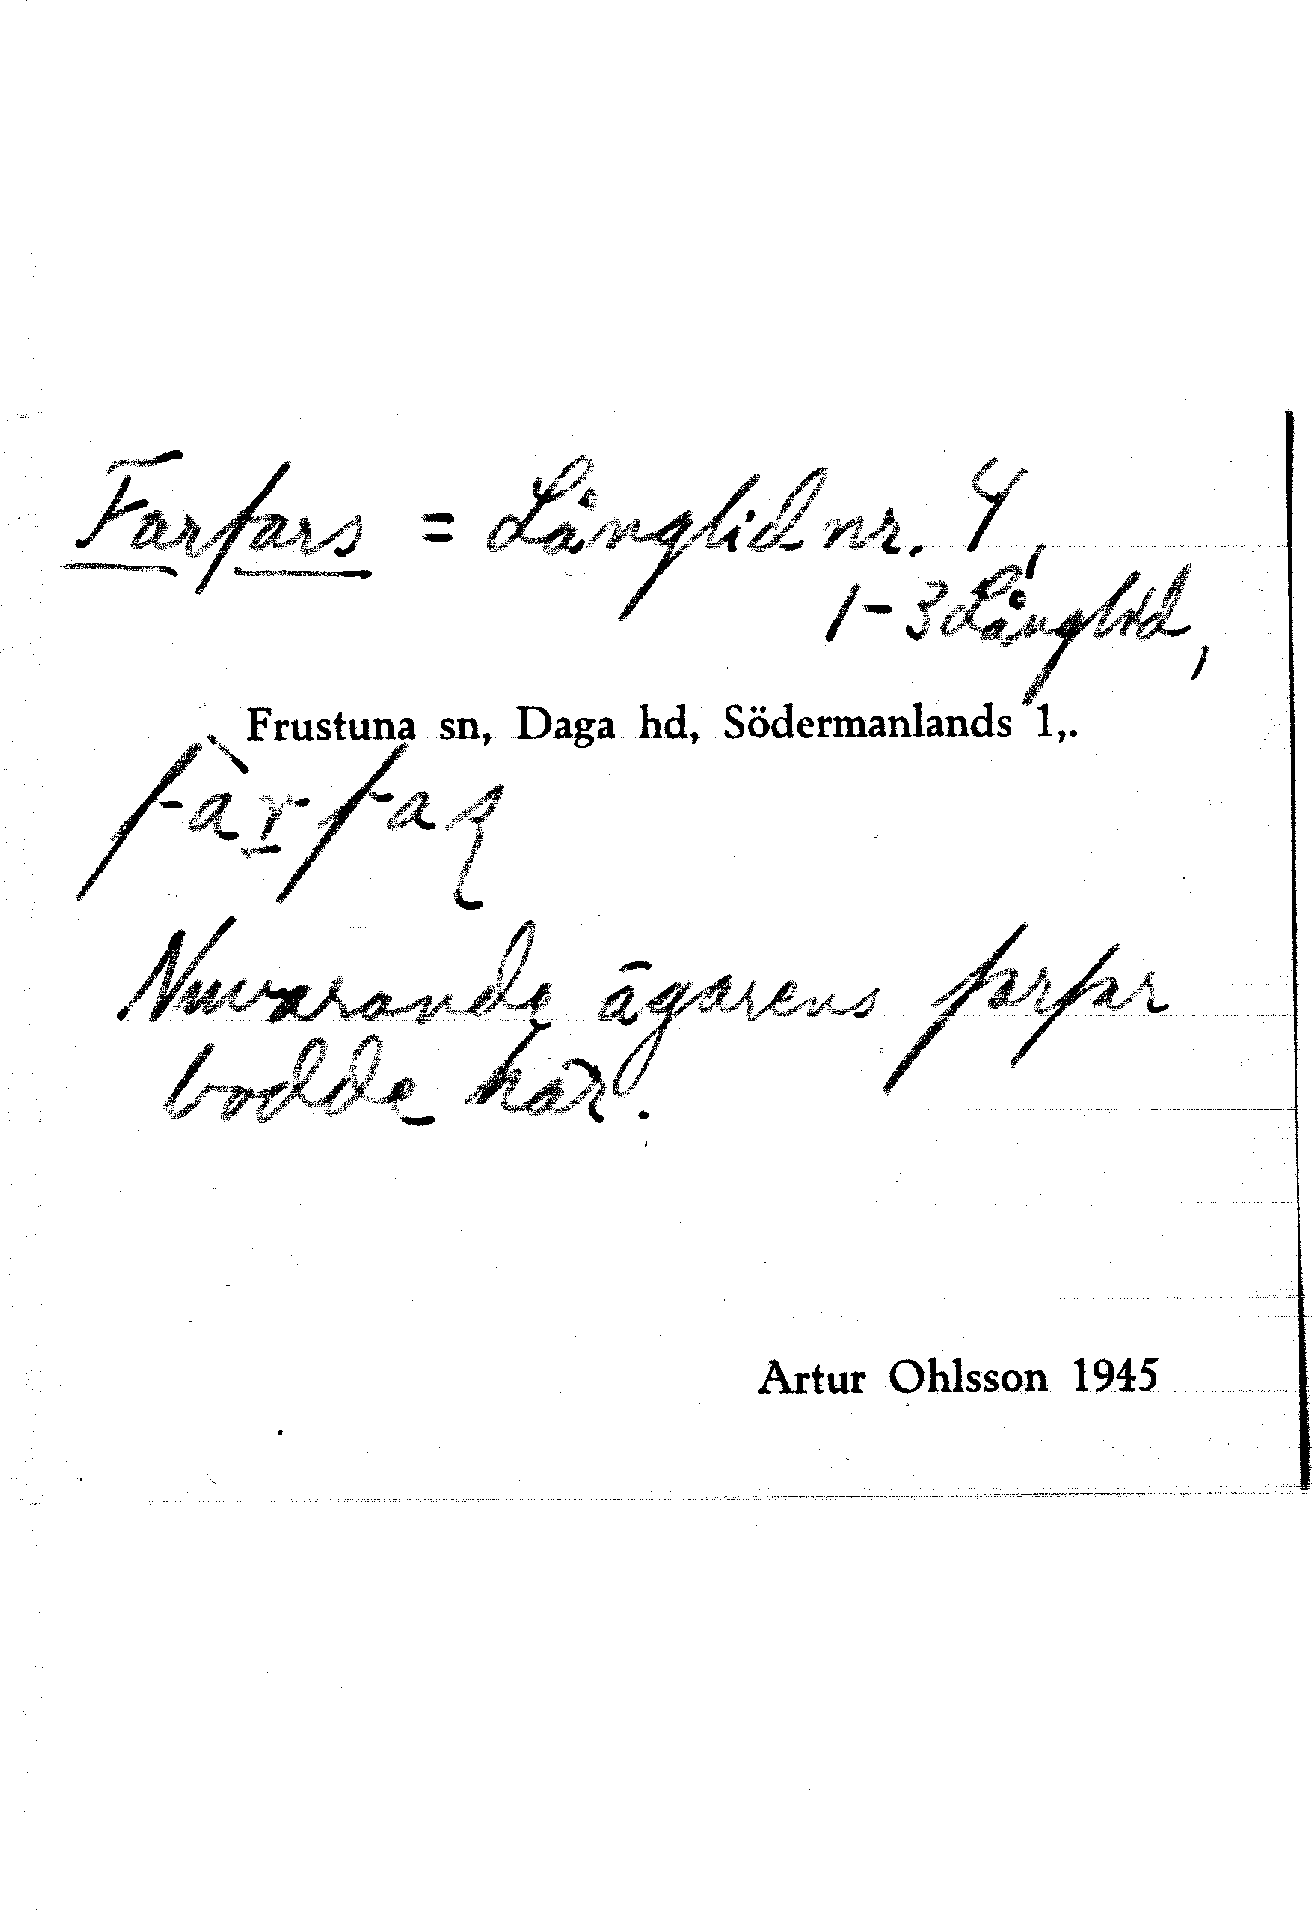 Farfars = Långlid nr. 4,
1-3 Långlid,
Frustuna sn, Daga hd, Södermanlands l,.
fàr̲faʂ
Nuvarande ägarens farfar
bodde här.
Artur Ohlsson 1945